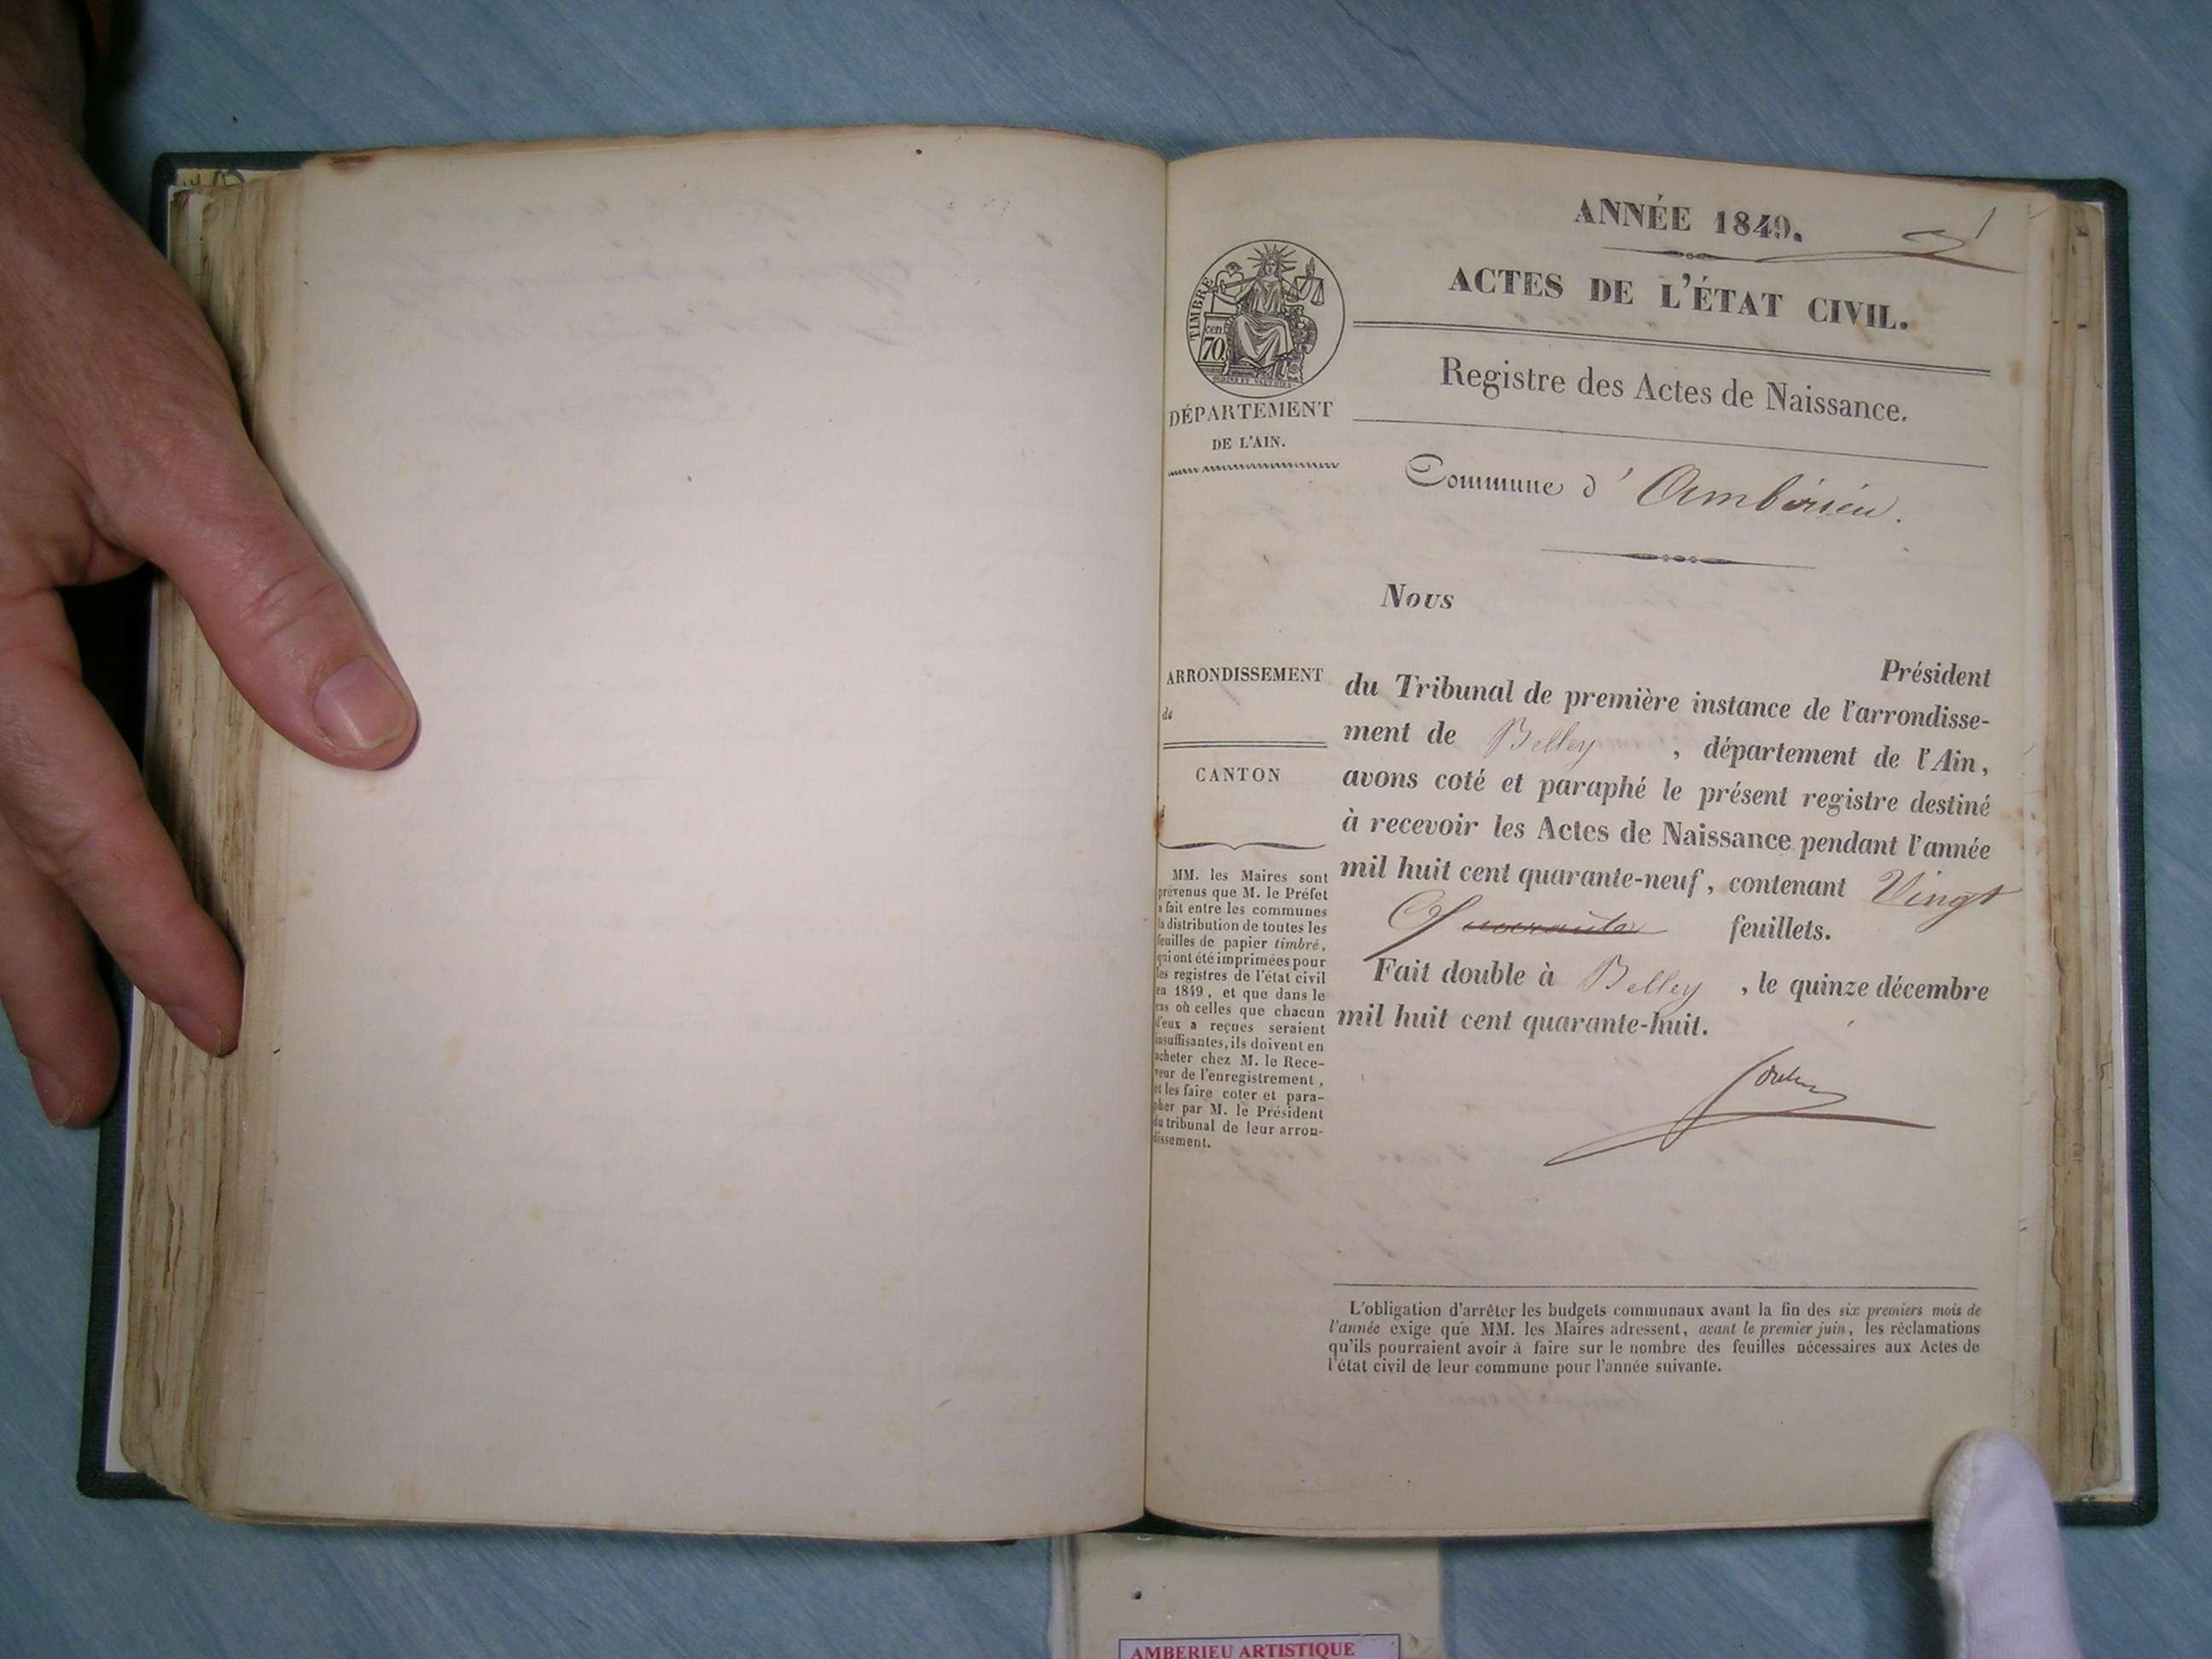 ANNÉE 1849.
1
ACTES DE L'ÉTAT CIVIL.
TIMBRE
cen.
70
DÉPARTEMENT
DE L'AIN.
Registre des Actes de Naissance.
Commune d' Ambérieu.
Nous
Président
ARRONDISSEMENT
de
CANTON
d
du Tribunal de première instance de l'arrondisse-
ment de Belley, département de l'Ain,
avons coté et paraphé le présent registre destiné
à recevoir les Actes de Naissance pendant l'année
mil huit cent quarante-neuf, contenant Vingt
feuillets.
Fait double à Belley, le quinze décembre
mil huit cent quarante-huit.
MM. les Maires sont
prévenus que M. le Préfet
a fait entre les communes
la distribution de toutes les
feuilles de papier timbré,
qui ont été imprimées pour
les registres de l'état civil
en 1849, et que dans le
cas où celles que chacun
d'eux a reçues seraient
insuffisantes, ils doivent en
acheter chez M. le Rece-
veur de l'enregistrement,
et les faire coter et para-
pher par M. le Président
du tribunal de leur arron-
dissement.
L'obligation d'arrêter les budgets communaux avant la fin des six premiers mois de
l'année exige que MM. les Maires adressent, avant le premier juin, les réclamations
qu'ils pourraient avoir à faire sur le nombre des feuilles nécessaires aux Actes de
l'état civil de leur commune pour l'année suivante.
AMBERIEU ARTISTIQUE